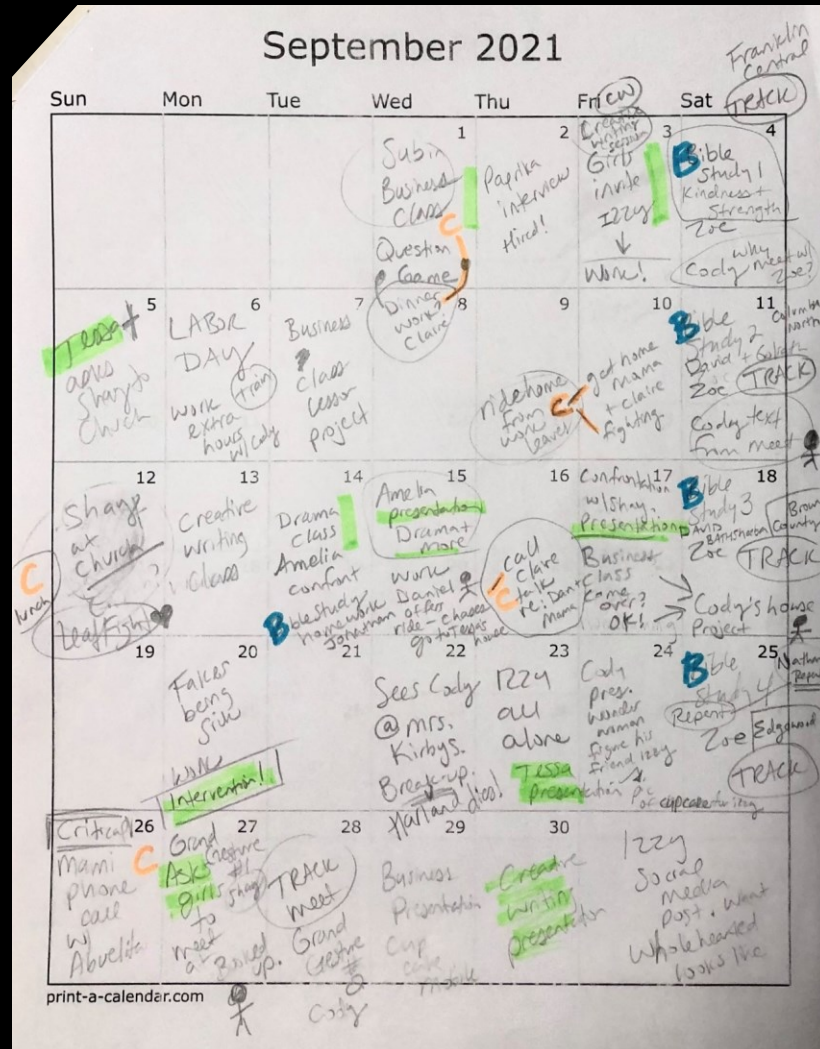 September 2021
Franklin
Central
TRACK
Sun
Mon
Tue
Wed
Thu
Fri
CW
Sat
1
Subin
Business
Class
C
Question
Game
Dinner
work?
Claire
2
Paprika
interview
Hired!
3
Creative
writing
Girls
invite
Izzy
Work!
4
Bible
Study 1
Kindness +
Strength
Zoe
Cody why
meet w/
Zoe?
5
Tessa
asks
Shay to
Church
6
LABOR
DAY
train
work
extra
hours
w/ Cody
7
Business
Class
Lesson
project
8
9
ride home
from
work
leaves
C
10
get home
mama
+ Claire
fighting.
11
Columbus
North
Bible
Study 2
David + Goliath
Zoe
TRACK
Cody text
from meet
12
Shay
at
Church
?
C
lunch
Leaf Fight
13
Creative
writing
Class
14
Drama
Class
Amelia
confront
Bible study
homework
15
Amelia
presentation
Drama +
more
Work
Daniel
offers
ride - Chases
go to Tessa's
house
16
call
Claire
talk
re: Dan +
Mama
C
17
Confrontation
w/ Shay.
Presentation
Business
Class
come
over?
OK!
18
Bible
Study 3
DAVID
BATHSHEBA
Zoe
Brown
County
TRACK
Cody's house
Project
19
20
Fakes
being
Sick
work
Intervention!
21
22
Sees Cody
@ mrs.
Kirbys.
Break-up.
Harland dies!
23
Izzy
all
alone
Tessa
presentation
24
Cody
pres.
Wonder
woman
figure his
friend Izzy
pic
of cupcake for izzy
25
Bible
Study 4
Nathan
Repent
Repent
Zoe
Edgewood
TRACK
26
Critical
Mami
phone
call
w/
Abuelita
C
27
Grand
Gesture
#1
Shay
Asks
girls
to
meet
at
Booked
up.
28
TRACK
meet
Grand
Gesture
#2
Cody
29
Business
Presentation
Cup
cake
mobile
30
Creative
writing
presentation
Izzy
Social
media
post. want
Wholehearted
looks like
print-a-calendar.com